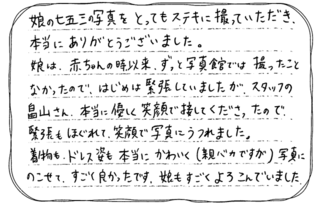 娘の七五三の写真を とってもステキに 撮っていただき、
本当に ありがとうございました。
娘は、赤ちゃんの時以来、ずっと写真館では 撮ったこと
なかったので、はじめは 緊張していましたが、スタッフの
畠山さん、本当に優しく 笑顔で接してくださったので、
緊張も ほぐれて、笑顔で 写真に うつれました。
着物も、ドレス姿も 本当に かわいく (親バカですが) 写真に
のこせて、すごく良かったです。娘も すごく よろこんでいました。